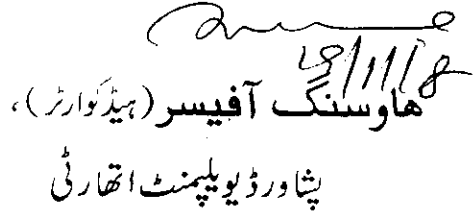 ھاوسنگ آفیسر (ہیڈکوارٹر)،
پشاور ڈیویلپمنٹ اتھارٹی